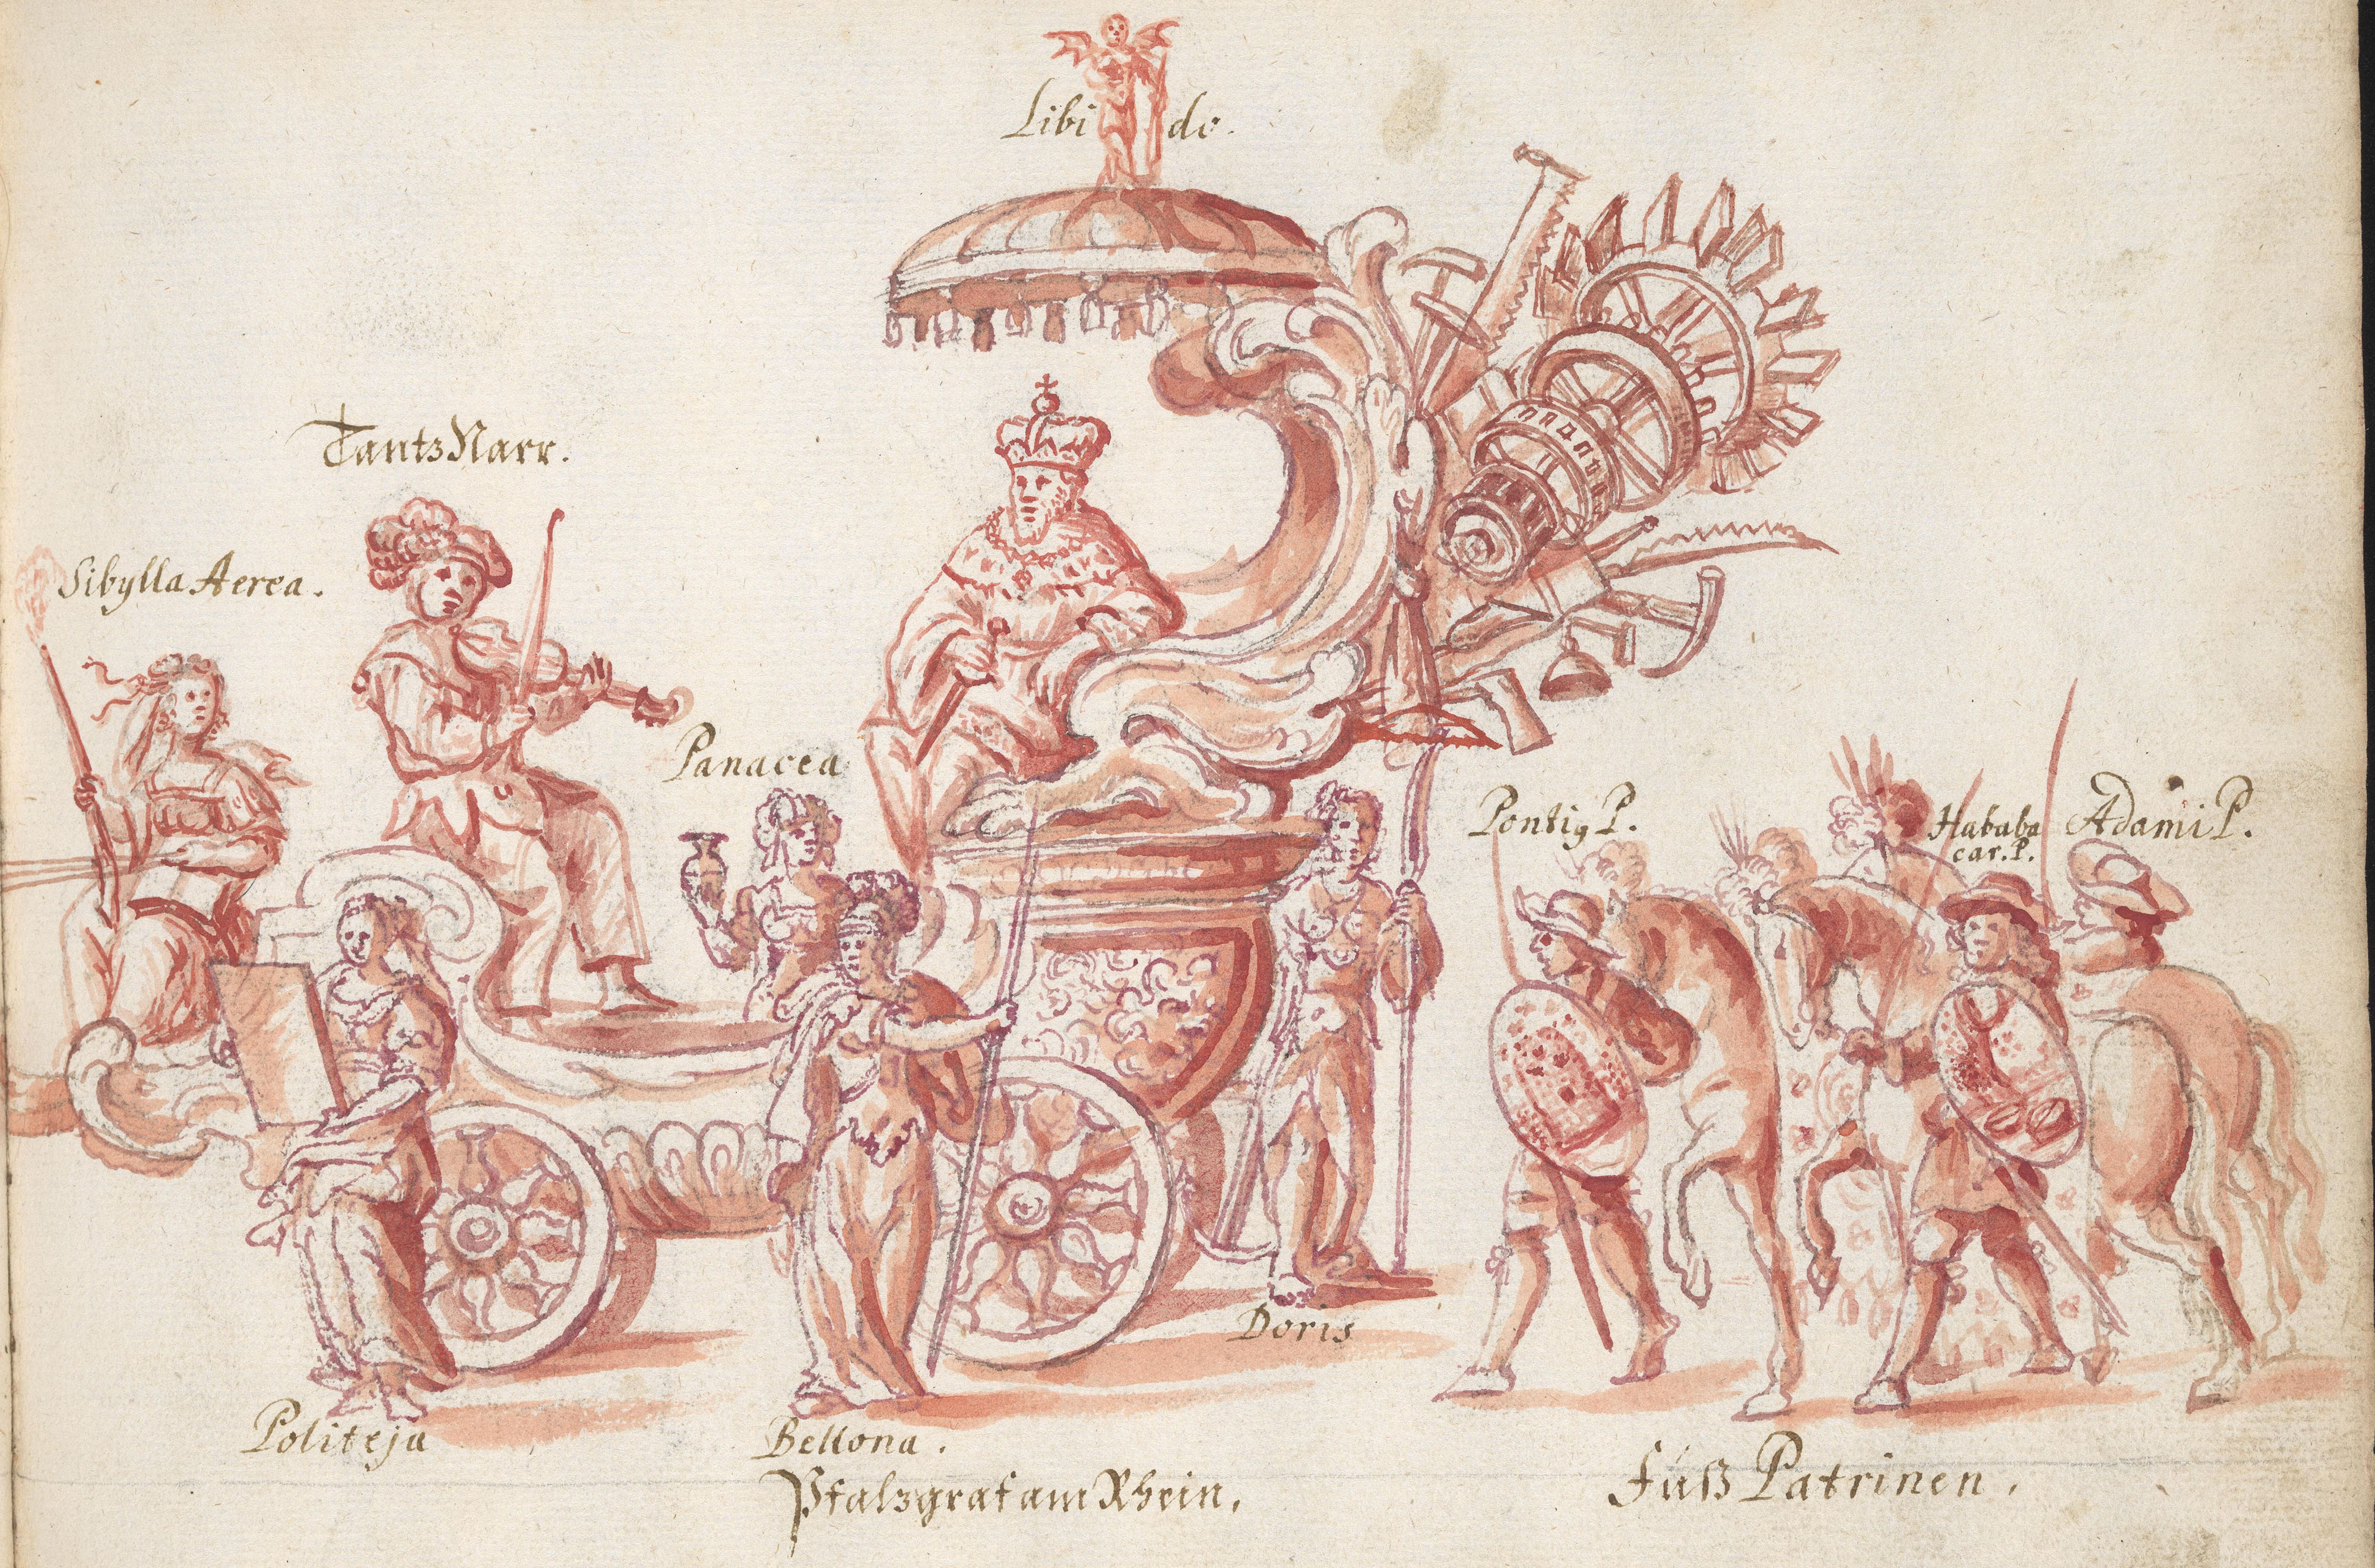 Libido.
TantzNarr.
Sibylla Aerea.
Panacea
Pontig P.
Hababa
car. P.
Adami P.
Doris
Politeja
Bellona.
Pfalzgraf am Rhein.
Fuß Patrinen.